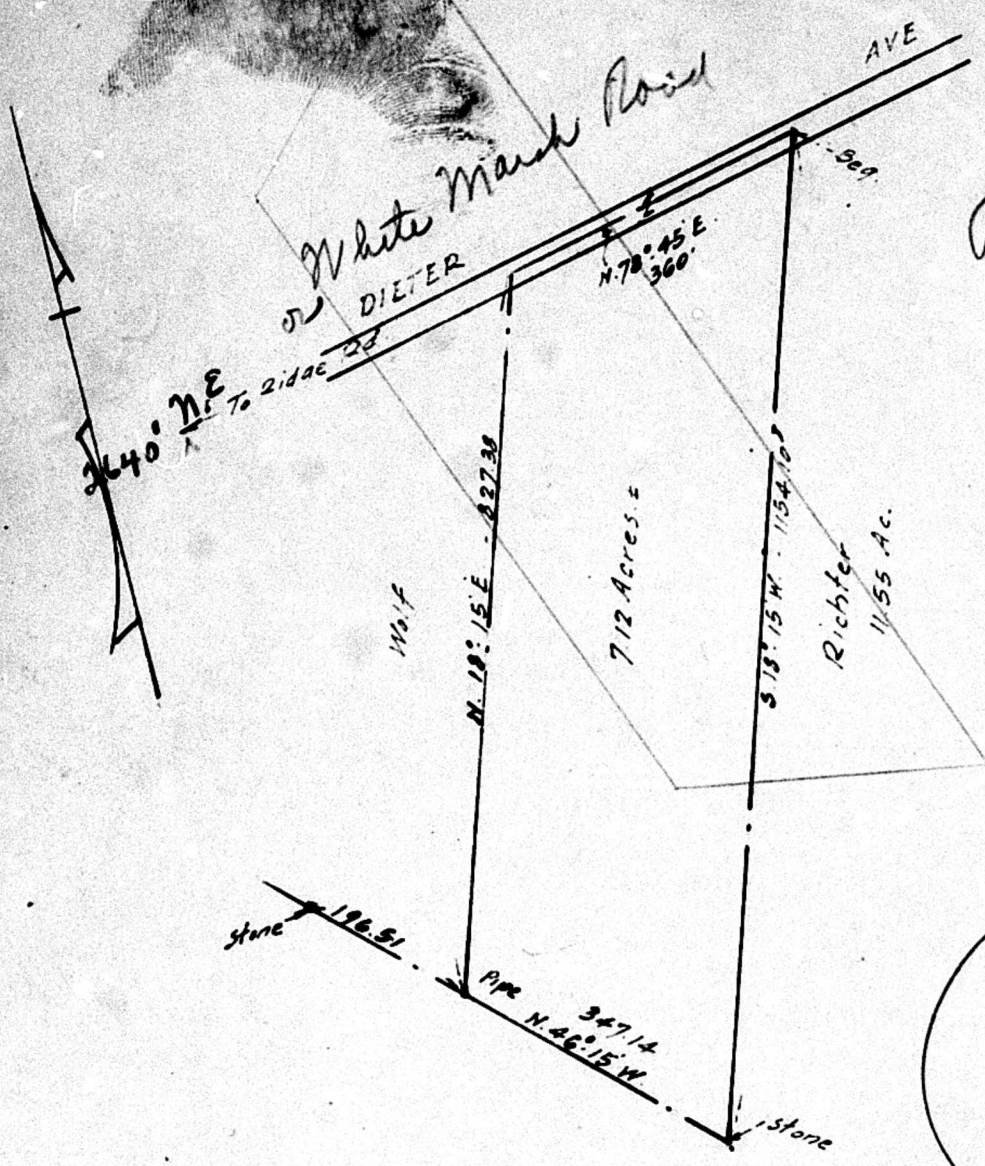 AVE
or White Marsh Road
DIETER
Beg.
N. 78° 45' E.
360'
2640' N.E
To Ridge Rd
N. 18° 15' E. - 827.38
7.12 Acres ±
S. 18° 15' W. - 1154.10
Wolf
Richter
11.55 Ac.
stone
196.51
Pipe
347.14
N. 46° 15' W.
stone